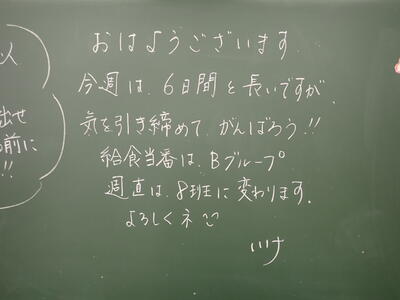 おはようございます.
今週は、6日間と長いですが、
気を引き締めて、がんばろう!!
給食当番は、Bグループ
週直は、8班に変わります.
よろしくネ
出せ
前に
!!